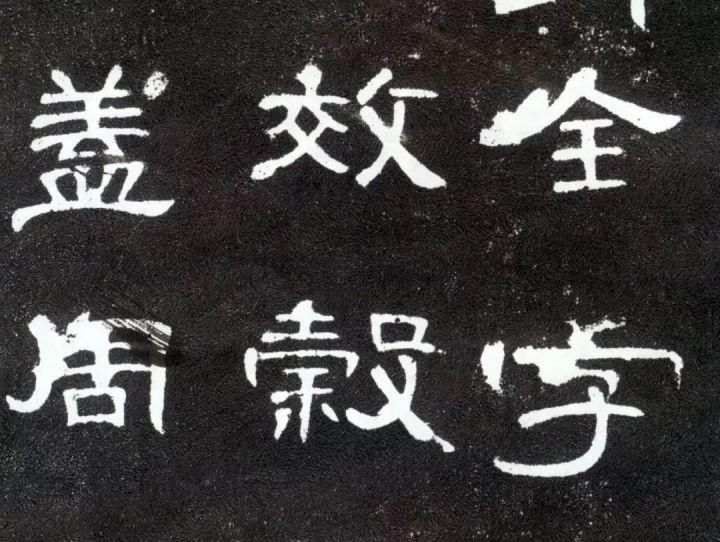 全字
效穀
盖周